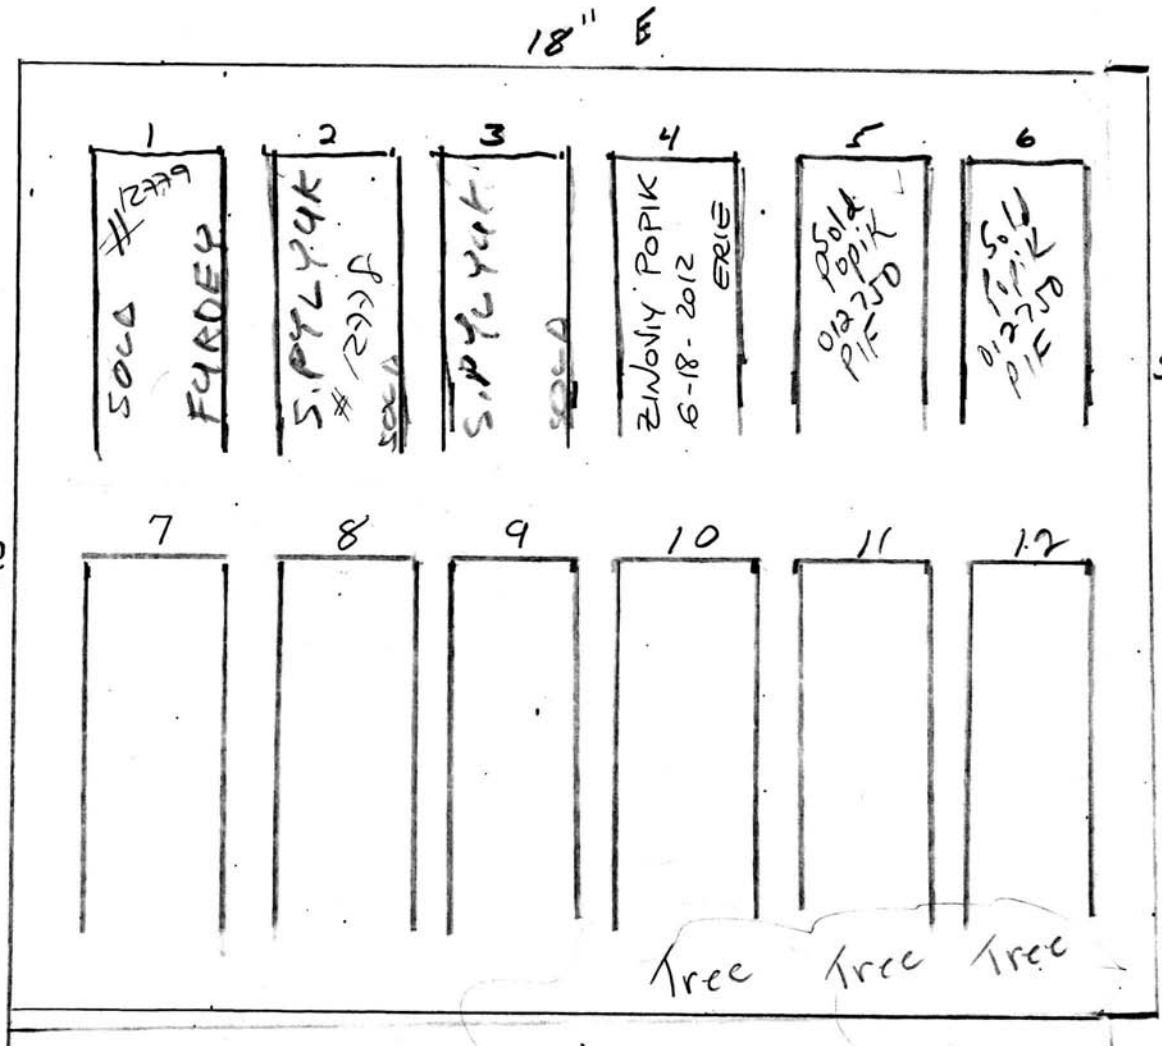 18" E
1
# 12779
SOLD
FURDEY
2
S. PYLYUK
# 12778
SOLD
3
S. PYLYUK
SOLD
4
ZINOVIY POPIK
6-18-2012
ERIE
5
Sold
Popik
012750
PIF
6
Sold
Popik
012750
PIF
7
8
9
10
11
12
Tree
Tree
Tree